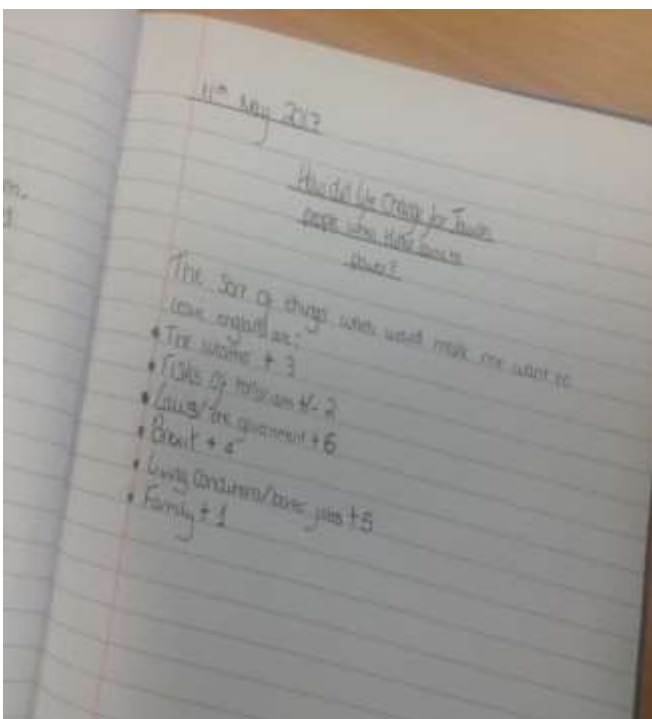 11th May 2017
How did life change for Jewish
people when Hitler came to
power?
The sort of things which would make me want to
leave england are:
• The weather + 3
• risks of terrorism +/- 2
• Laws/the government + 6
• Brexit + 4
• Living conditions/better jobs + 5
• Family + 1